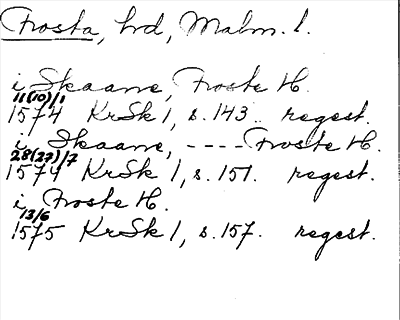 Frosta, hrd, Malm. l.
i Skaane, Froste H.
11(10)/1
1574 KrSk 1, s. 143. regest.
i Skaane, ---- Froste H.
28(27)/7
1574 KrSk 1, s. 151. regest.
i Froste H.
13/6
1575 KrSk 1, s. 157. regest.